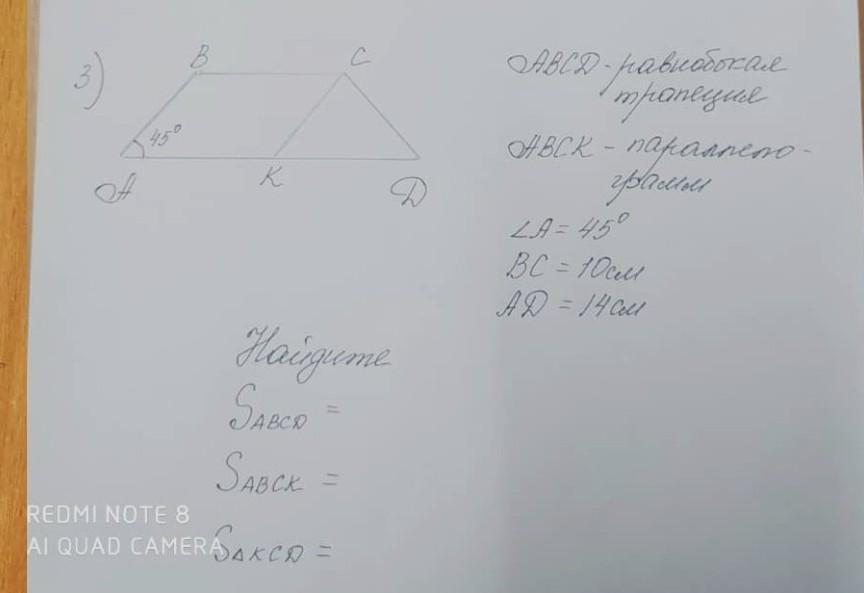 3)
B C
45°
A K D
ABCD - равнобокая
трапеция
ABCK - параллело-
грамм
∠A = 45°
BC = 10см
AD = 14см
Найдите
S ABCD =
S ABCK =
S ΔKCD =
REDMI NOTE 8
AI QUAD CAMERA